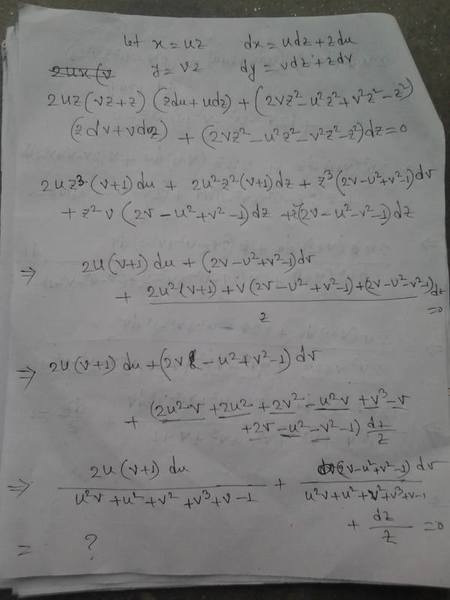 let x = uz    dx = udz + zdu
y = vz    dy = vdz + zdv
2uz (vz+z) (zdu+udz) + (2vz² - u²z² + v²z² - z²)
(zdv+vdz) + (2vz² - u²z² - v²z² - z²)dz = 0
2uz³ (v+1) du + 2u²z² (v+1) dz + z³ (2v-u²+v²-1) dv
+ z²v (2v - u² + v² - 1) dz + z²(2v - u² - v² - 1) dz
⇒ 2u (v+1) du + (2v-u²+v²-1) dv
+ (2u²(v+1) + v(2v-u²+v²-1) + (2v-u²-v²-1))/z dz = 0
⇒ 2u (v+1) du + (2v - u² + v² - 1) dv
+ (2u²v + 2u² + 2v² - u²v + v³ - v
+ 2v - u² - v² - 1) dz/z
⇒ 2u (v+1) du / (u²v + u² + v² + v³ + v - 1) + (2v-u²+v²-1) dv / (u²v + u² + v² + v³ + v - 1)
+ dz/z = 0
= ?